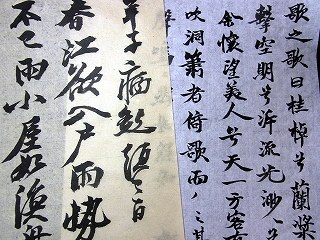 歌之歌曰桂棹兮蘭槳
擊空明兮泝流光渺
余懷望美人兮天一方客有
吹洞簫者倚歌而
年子病起須已白
春江欲入戶雨勢
不已雨小屋如漁舟